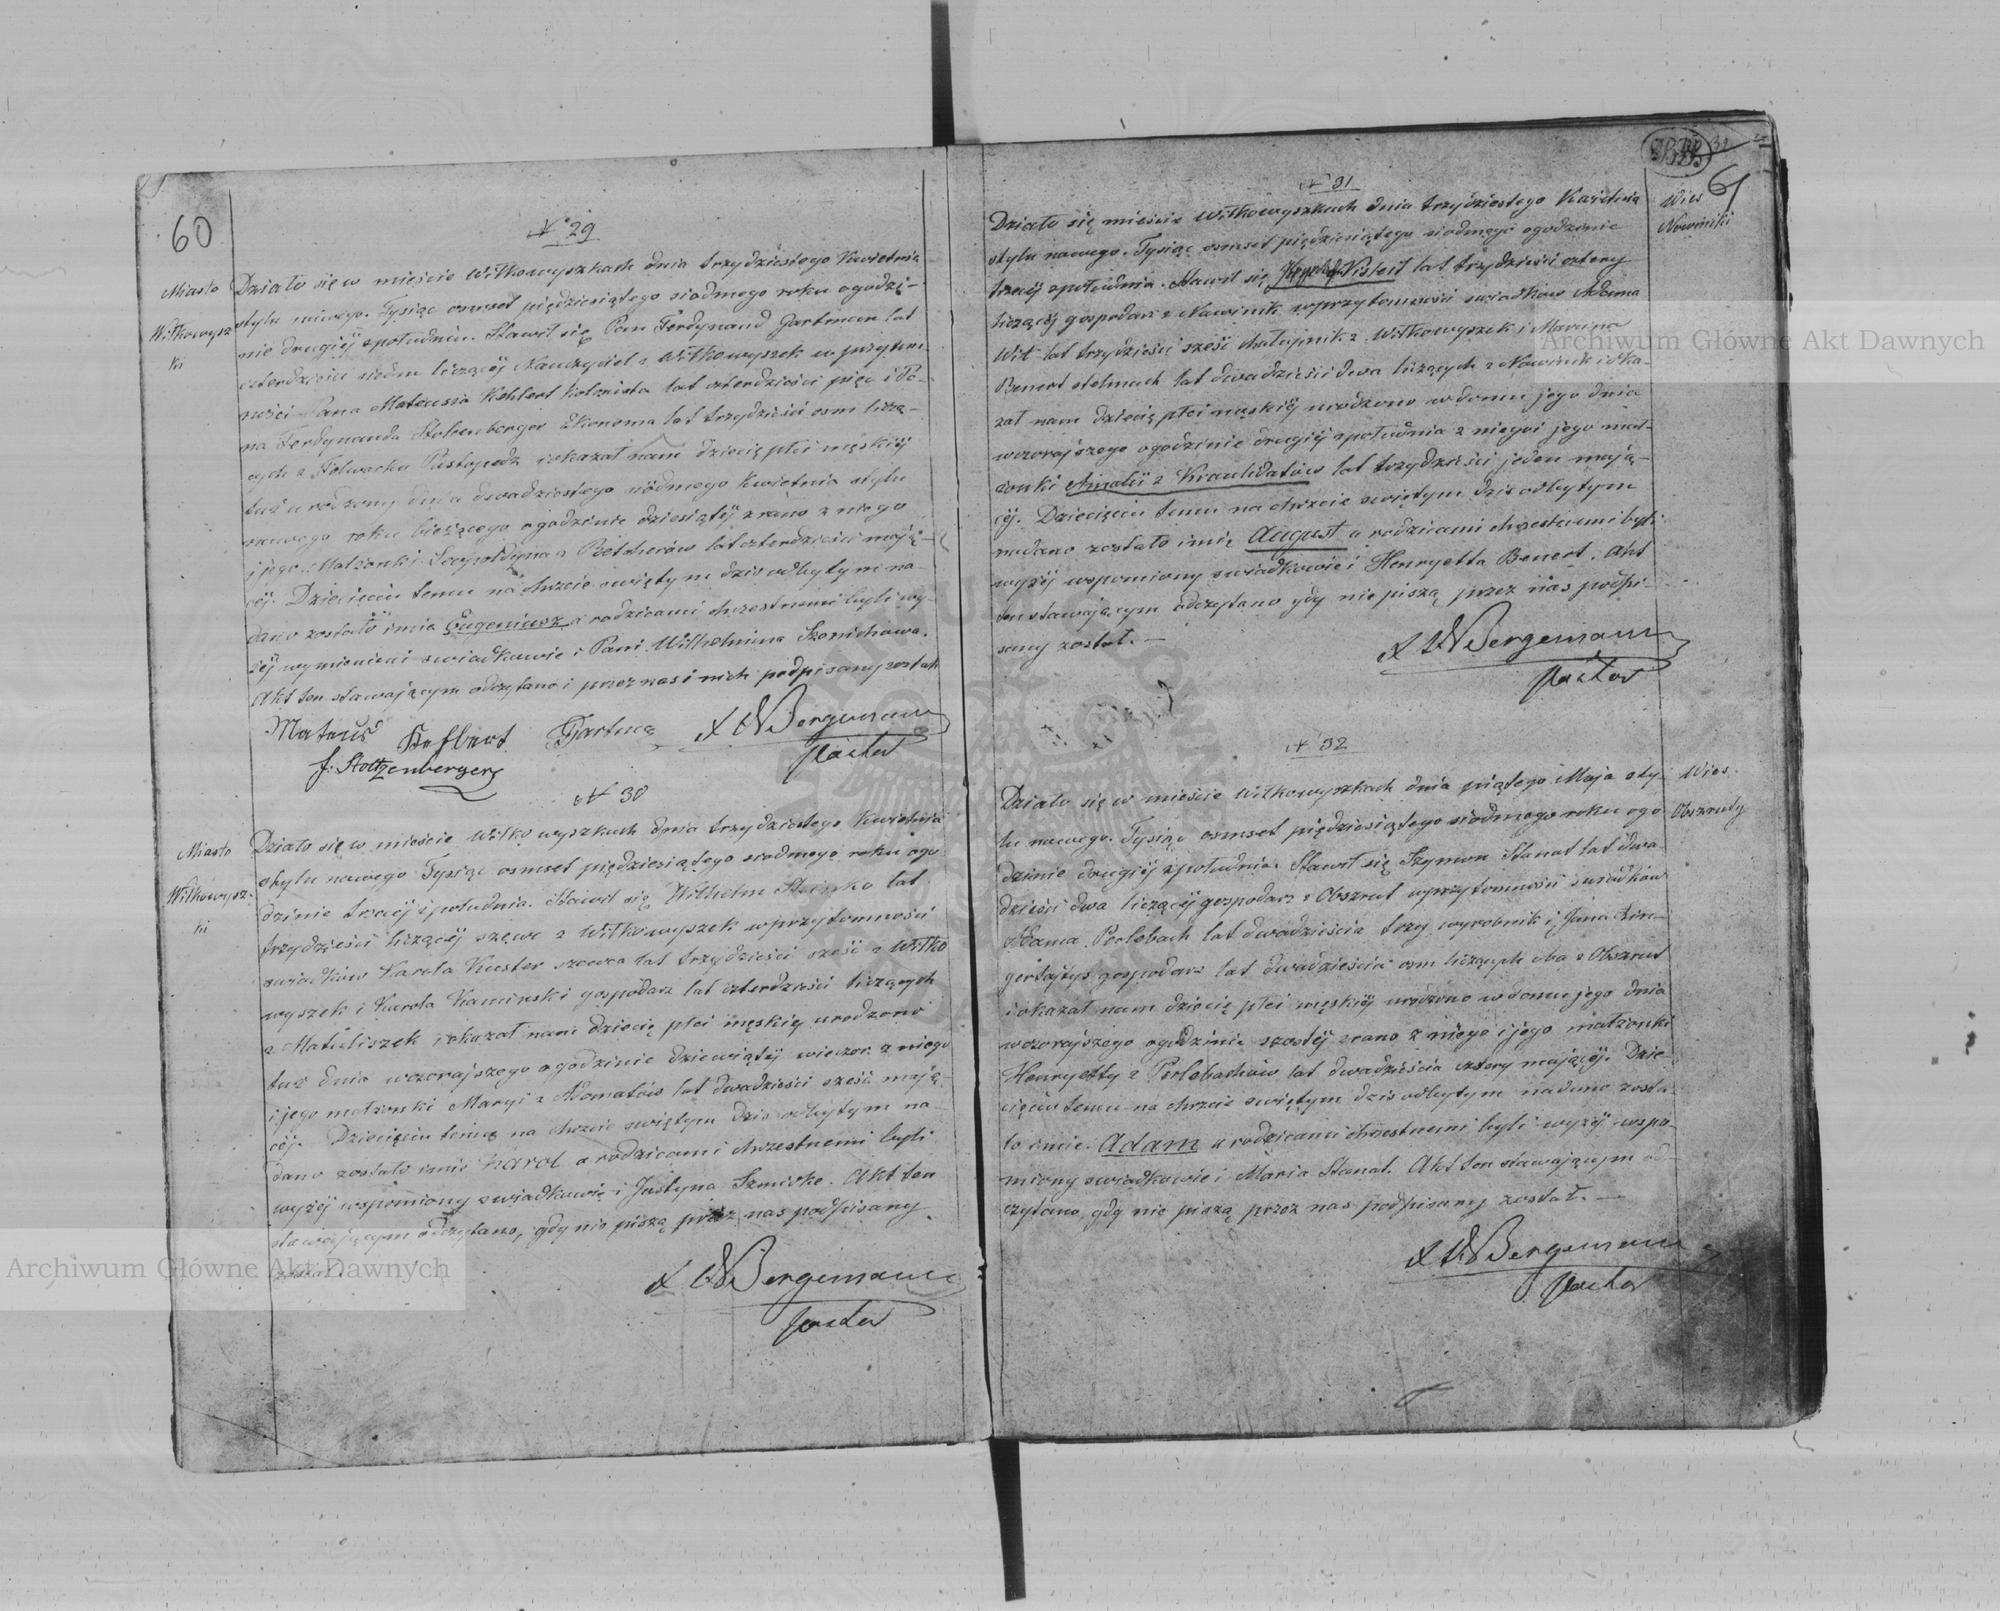 60
N 29
Miasto
Wiłkowysz
ki
Działo się w mieście Wiłkowyszkach dnia trzydziestego Kwietnia
stylu nowego. Tysiąc osmset pięćdziesiątego siodmego roku ogodzi-
nie drugiéj zpołudniu. Stawił się Pan Ferdynand Gartman lat
czterdzieści siedm liczący Nauczyciel z Wiłkowyszek w przytom
ności Pana Mateusza Kehlert kolonista lat czterdzieści pięć i Pa-
na Ferdynanda Stolzenberger Ekonoma lat trzydzieści osm liczą-
cych z Folwarku i okazał nam dziecię płci męskiéj
tuż urodzony dnia dwadziestego siódmego Kwietnia stylu
nowego roku bieżącego ogodzinie dziesiątéj zrana z niego
i jego Małżonki Leopoldyna z lat czterdzieści mają-
céj. Dziecięciu temu na chrzcie świętym dziś odbytym na-
dano zostało imie Eugeniusz a rodzicami chrzestnemi byli wy-
żéj wymienieni swiadkowie i Pani Wilhelmina
Akt ten stawającym odczytano i przez nas i nich podpisany został
Mateus Kehlert Gartman A W Bergemann
f. Stoltzenberger Pastor
N 30
Miasto
Wiłkowysz-
ki
Działo się w mieście Wiłkowyszkach dnia trzydziestego Kwietnia
stylu nowego Tysiąc osmset pięćdziesiątego siodmego roku ogo
dzinie trzeciéj zpołudnia. Stawił się Wilhelm lat
trzydzieści liczącéj szewc z Wiłkowyszek wprzytomności
swiadków Karola Kuster szewca lat trzydzieści sześć z Wiłko
wyszek i Karola Kaminski gospodarz lat czterdzieści liczących
z Matuliszek i okazał nam dziecię płci męskiéj urodzono
tuż dnia wczorajszego ogodzinie dziewiątéj wieczor z niego
i jego małżonki Maryi z Adomatów lat dwadzieści sześć mają-
céj. Dziecięciu temu na chrzcie świętym dziś odbytym na-
dano zostało imie Karol a rodzicami chrzestnemi byli
wyżéj wspomiony swiadkowie i Justyna Szmidke. Akt ten
stawającym odczytano, gdy nie piszą przez nas podpisany
został.
A W Bergemann
Pastor
61
N 31
Wies
Nowiniki
Działo się mieście Wiłkowyszkach dnia trzydziestego Kwietnia
stylu nowego. Tysiąc osmset pięćdziesiątego siodmego ogodzinie
trzeciéj zpołudnia. Stawił się Kisleit lat trzydzieści cztery
liczącéj gospodarz z Nowinik wprzytomności swiadków Adama
Wił lat trzydzieści sześć chałupnik z Wiłkowyszek i Marcina
Benert stelmach lat dwadzieści dwa liczących z Nowinik i oka-
zał nam dziecię płci męskiéj urodzono w domu jego dnia
wczorajszego ogodzinie drugiéj zpołudnia z niego i jego mał-
żonki Amalii z Kraulidatów lat trzydzieści jeden mają-
céj. Dziecięciu temu na chrzcie świętym dziś odbytym
nadano zostało imię August a rodzicami chrzestnemi byli
wyżéj wspomiony swiadkowie i Henryetta Benert. Akt
ten stawającym odczytano gdy nie piszą przez nas podpi-
sany został. —
A W Bergemann
Pastor
N 32
Wies
Obszruty
Działo się w mieście Wiłkowyszkach dnia piątego Maja sty-
lu nowego. Tysiąc osmset pięćdziesiątego siodmego roku ogo
dzinie drugiéj zpołudnia. Stawił się Szymon Stanat lat dwa
dzieści dwa liczącéj gospodarz z Obszrut wprzytomności swiadków
Adama Perlebach lat dwadzieścia trzy wyrobnik i Jana
gospodarz lat dwadzieścia osm liczących oba z Obszrut
i okazał nam dziecię płci męskiéj urodzono w domu jego dnia
wczorajszego ogodzinie szostéj zrano z niego i jego małżonki
Henryetty z Perlebachów lat dwadzieścia cztery mającéj. Dzie-
cięciu temu na chrzcie świętym dziś odbytym nadano zosta-
ło imie. Adam a rodzicami chrzestnemi byli wyżéj wspo-
miony swiadkowie i Maria Stanat. Akt ten stawającym od-
czytano gdy nie piszą przez nas podpisany został. —
A W Bergemann
Pastor
Archiwum Główne Akt Dawnych
Archiwum Główne Akt Dawnych